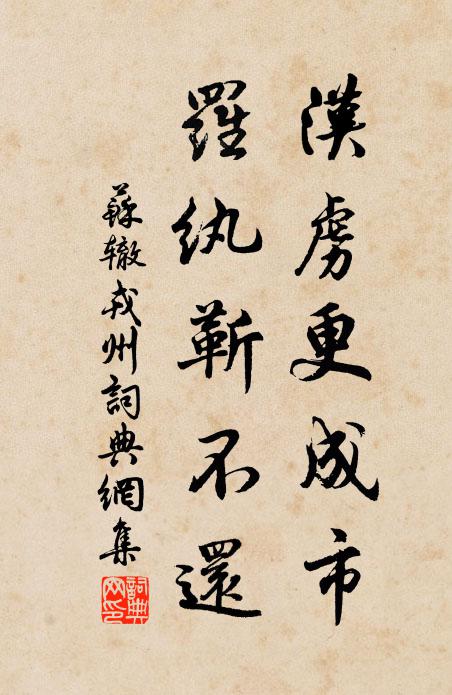 漢虜更成市
羅紈靳不還
蘇辙戎州詞典網集
詞典網印